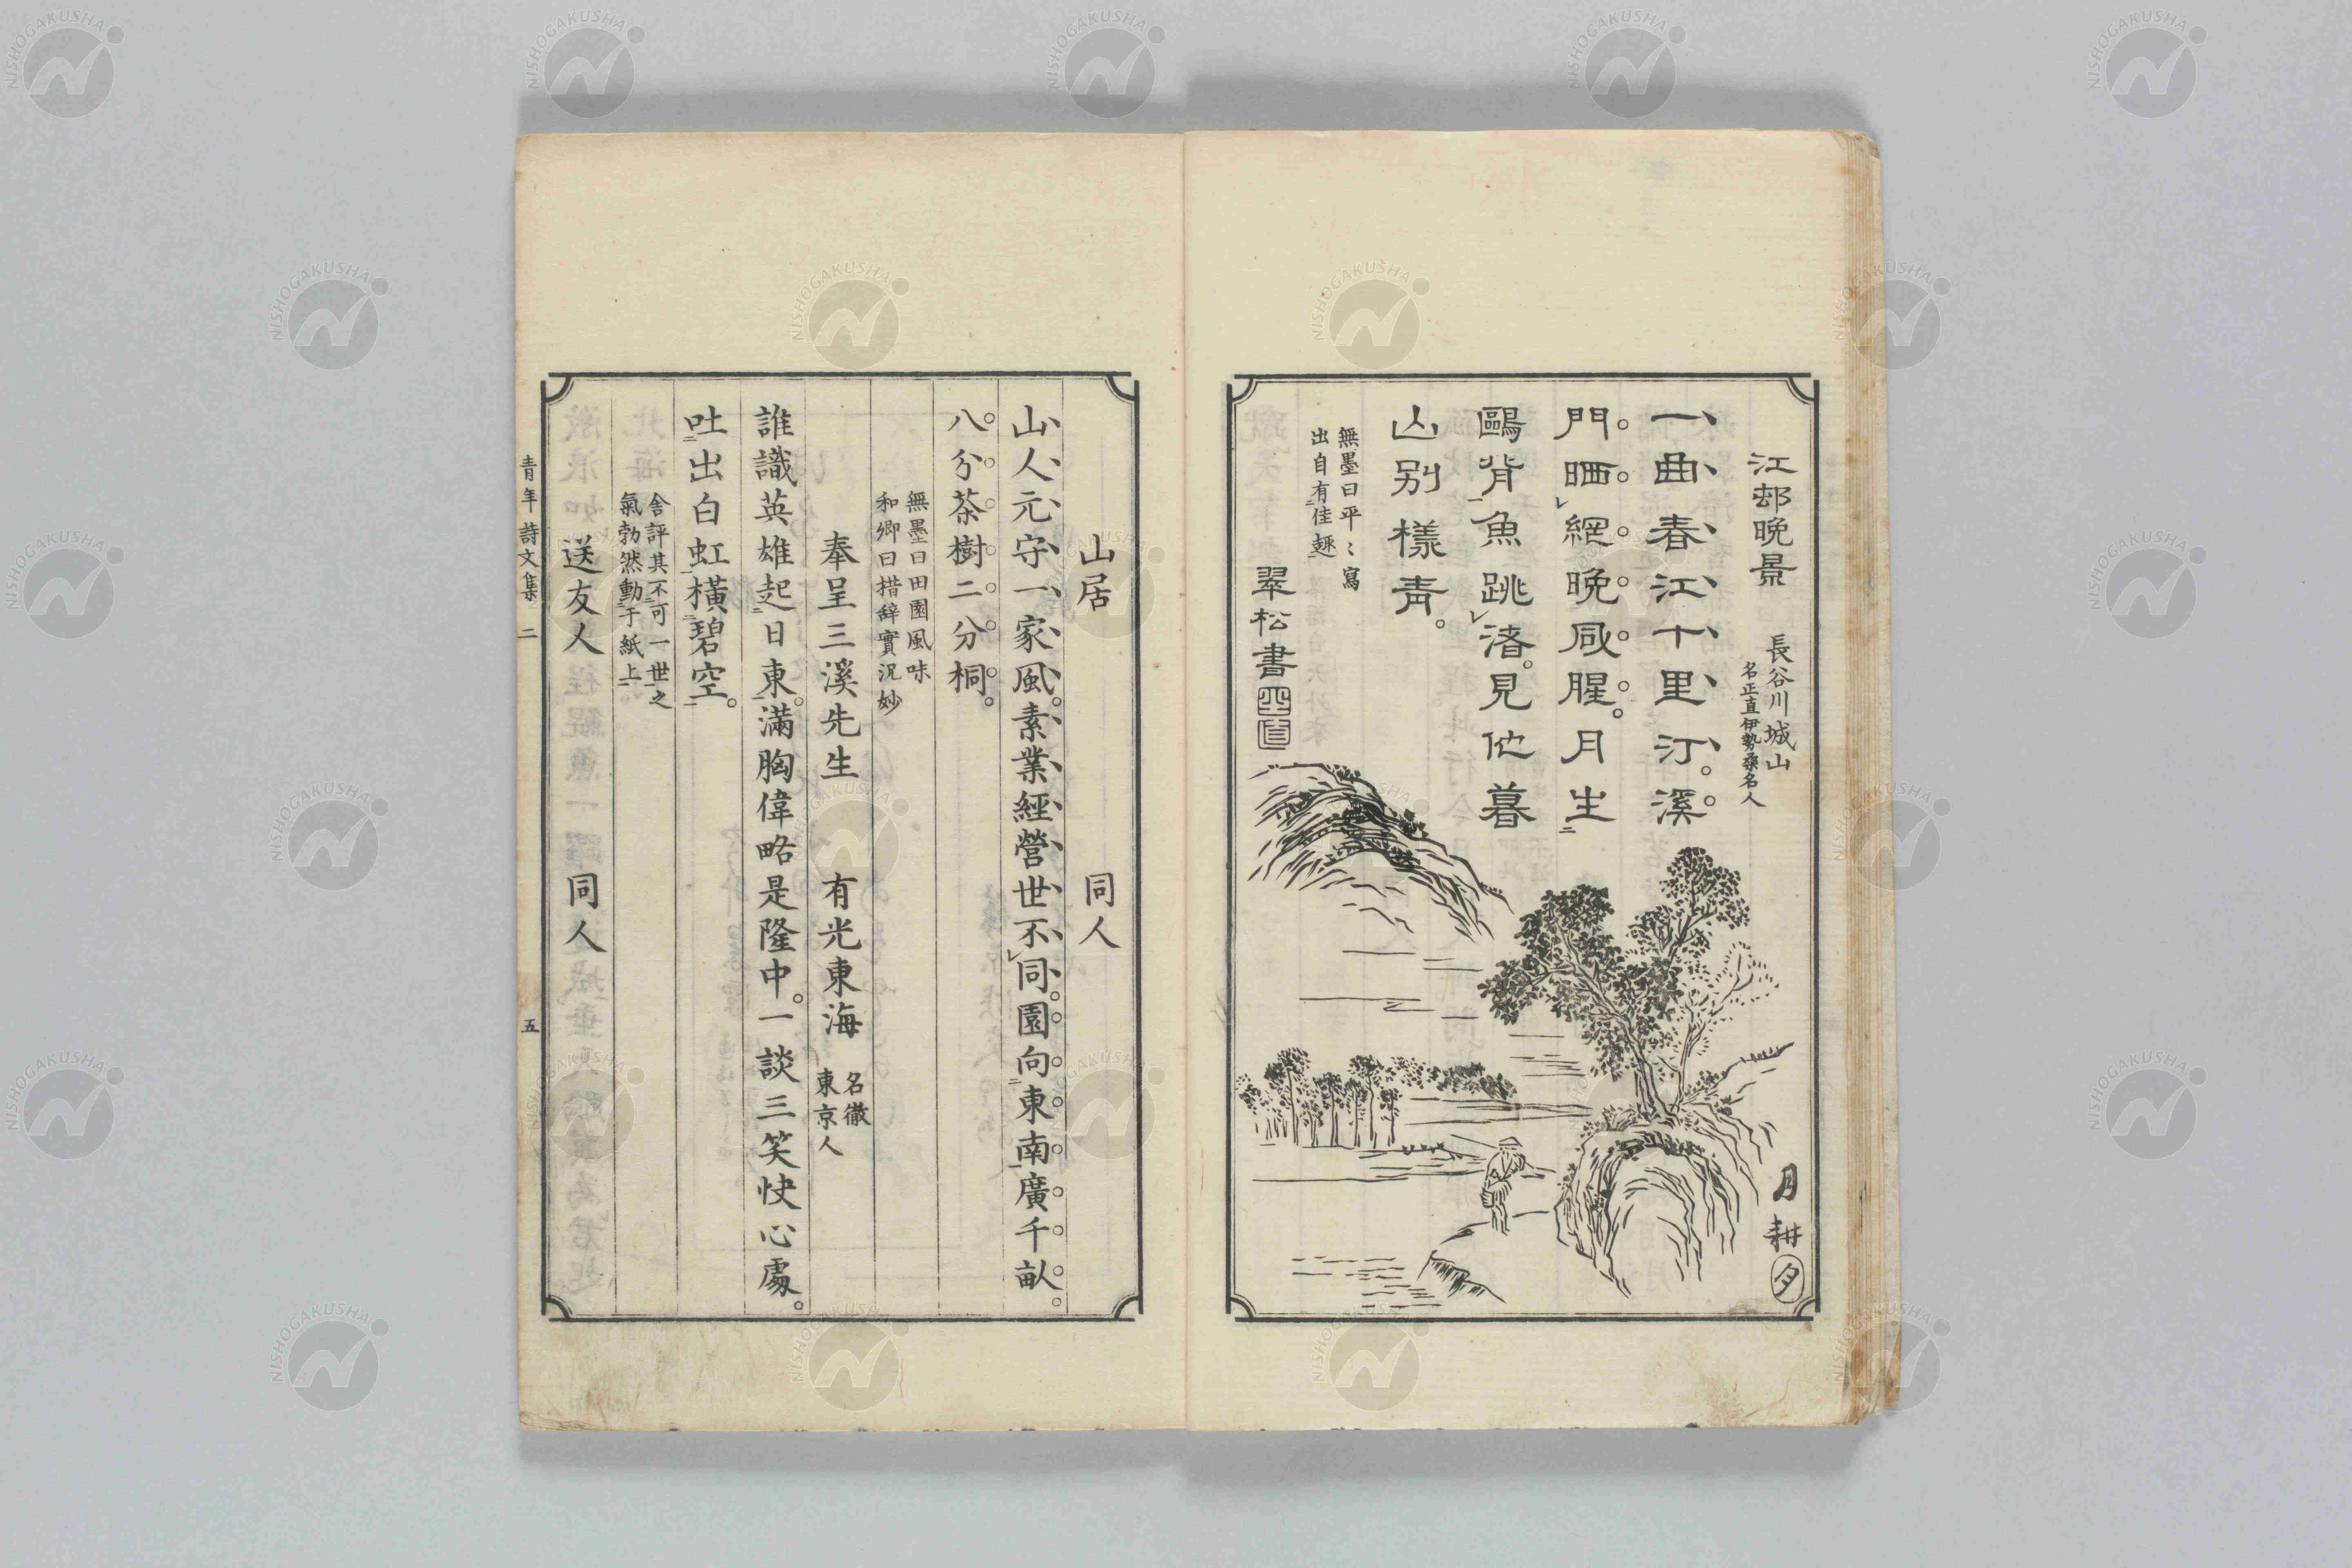 江邨晩景
長谷川城山
名正直伊勢桑名人
一曲春江十里汀。溪
門晒網晩風腥。月生
鷗背魚跳渚。見他暮
山別樣青。
無墨曰平〻寫
出自有佳趣
翠松書
月耕
山居
同人
山人元守一家風。素業經營世不同。園向東南廣千畝。
八分茶樹二分桐。
無墨曰田園風味
和卿曰措辭實況妙
奉呈三溪先生
有光東海
名徹
東京人
誰識英雄起日東。滿胸偉略是隆中。一談三笑快心處。
吐出白虹橫碧空。
舎評其不可一世之
氣勃然動于紙上
送友人
同人
青年詩文集
二
五
NISHOGAKUSHA